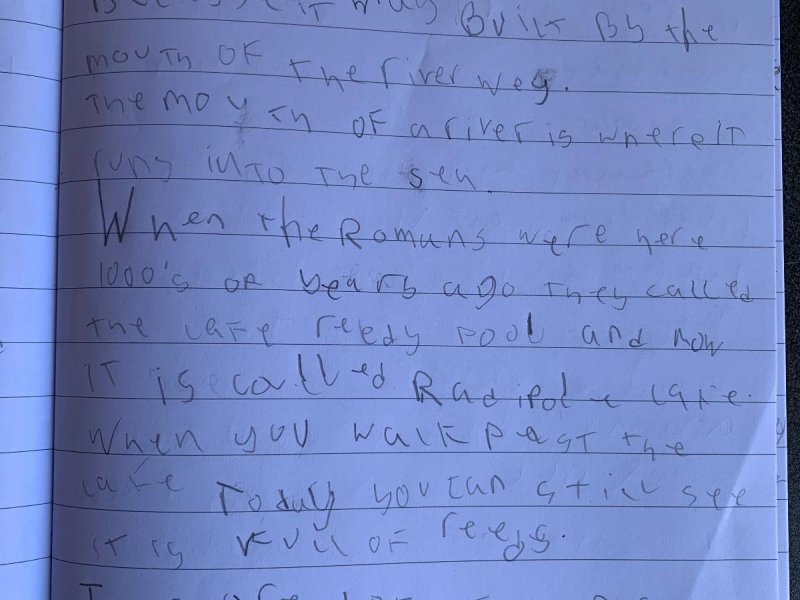 it was Built By the
mouth of the river wey.
The mouth of a river is where it
runs into the sea.
When the Romans were here
1000's of years ago they called
the lake reedy pool and now
it is called Radipole lake.
When you walk past the
lake Today you can still see
it is full of reeds.